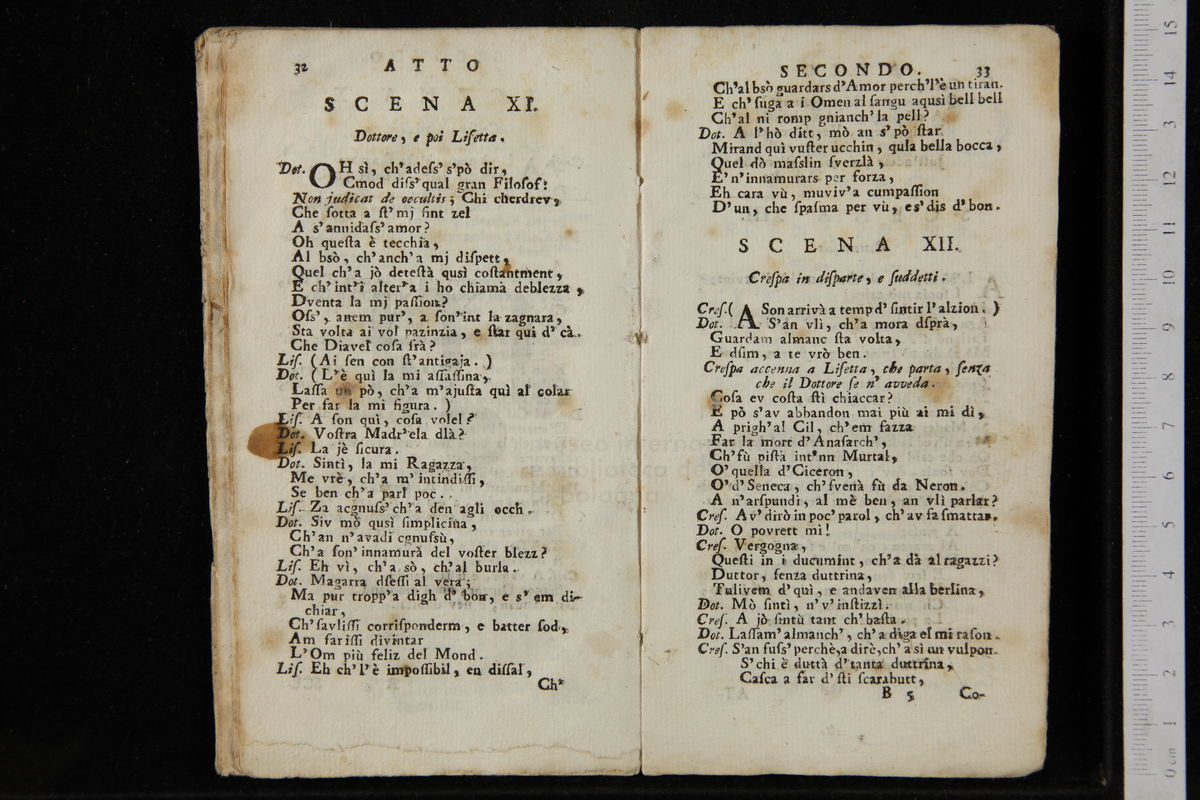 32 ATTO
SCENA XI.
Dottore, e poi Liſetta.
Dot. OH sì, ch'adeſs' s'pò dir,
Cmod diſs' qual gran Filoſof:
Non judicat de occultis; Chi cherdrev,
Che ſotta a ſt' mj ſint zel
A s'annidaſs' amor?
Oh queſta è tecchia,
Al bsò, ch'anch'a mj diſpett,
Quel ch'a jò deteſtà qusì coſtantment,
E ch'int'i alter'a i ho chiamà deblezza,
Dventa la mj paſſion?
Oſs', anem pur', a ſon'int la zagnara,
Sta volta ai vol pazinzia, e ſtar qui d' cà.
Che Diavel coſa ſrà?
Liſ. (Ai ſen con ſt'antigaja.)
Dot. (L'è quì la mi aſſaſſina,
Laſſa un pò, ch'a m'ajuſta quì al colar
Per far la mi figura.)
Liſ. A ſon quì, coſa volel?
Dot. Voſtra Madr'ela dlà?
Liſ. La jè ſicura.
Dot. Sintì, la mi Ragazza,
Me vrè, ch'a m' intindiſſi,
Se ben ch'a parl poc.
Liſ. Za acgnuſs' ch'a den agli occh.
Dot. Siv mò qusì ſimplicina,
Ch'an n'avadi cgnuſsù,
Ch'a ſon' innamurà del voſter blezz?
Liſ. Eh vì, ch'a sò, ch'al burla.
Dot. Magarra dſeſſi al vera;
Ma pur tropp'a digh d' bon, e s' em di-
chiar,
Ch'ſavliſſi corriſponderm, e batter ſod,
Am fariſſi divintar
L'Om più feliz del Mond.
Liſ. Eh ch'l'è impoſſibil, en diſſal,
Ch'
SECONDO. 33
Ch'al bsò guardars d'Amor perch'l'è un tiran.
E ch' ſuga a i Omen al ſangu aqusì bell bell
Ch'al ni romp gnianch'la pell?
Dot. A l'hò ditt, mò an s'pò ſtar
Mirand quì vuſter ucchin, qula bella bocca,
Quel dò maſslin ſverzlà,
E'n'innamurars per forza,
Eh cara vù, muviv'a cumpaſſion
D'un, che ſpaſma per vù, e s'dis d'bon.
SCENA XII.
Creſpa in diſparte, e ſuddetti.
Creſ. (A Son arrivà a temp d' ſintir l'alzion.)
Dot. S'an vlì, ch'a mora dſprà,
Guardam almanc ſta volta,
E dſim, a te vrò ben.
Creſpa accenna a Liſetta, che parta, ſenza
che il Dottore ſe n' avveda.
Coſa ev coſta ſtì chiaccar?
E pò s'av abbandon mai più ai mi dì,
A prigh'al Cil, ch'em fazza
Far la mort d'Anaſarch',
Ch'fù piſtà int'nn Murtal,
O'quella d'Ciceron,
O'd'Seneca, ch'ſvenà fù da Neron.
A n'arſpundi, al mè ben, an vlì parlar?
Creſ. Av'dirò in poc' parol, ch'av fa ſmattar.
Dot. O povrett mi!
Creſ. Vergogna,
Queſti in i ducumint, ch'a dà al ragazzi?
Duttor, ſenza duttrina,
Tulivem d'quì, e andaven alla berlina,
Dot. Mò ſintì, n'v'inſtizzì.
Creſ. A jò ſintù tant ch'baſta.
Dot. Laſſam'almanch', ch'a diga el mi raſon.
Creſ. S'an fuſs' perchè, a dirè, ch'a sì un vulpon.
S'chi è duttà d'tanta duttrina,
Caſca a far d'ſti ſcarabutt,
B 5 Co-